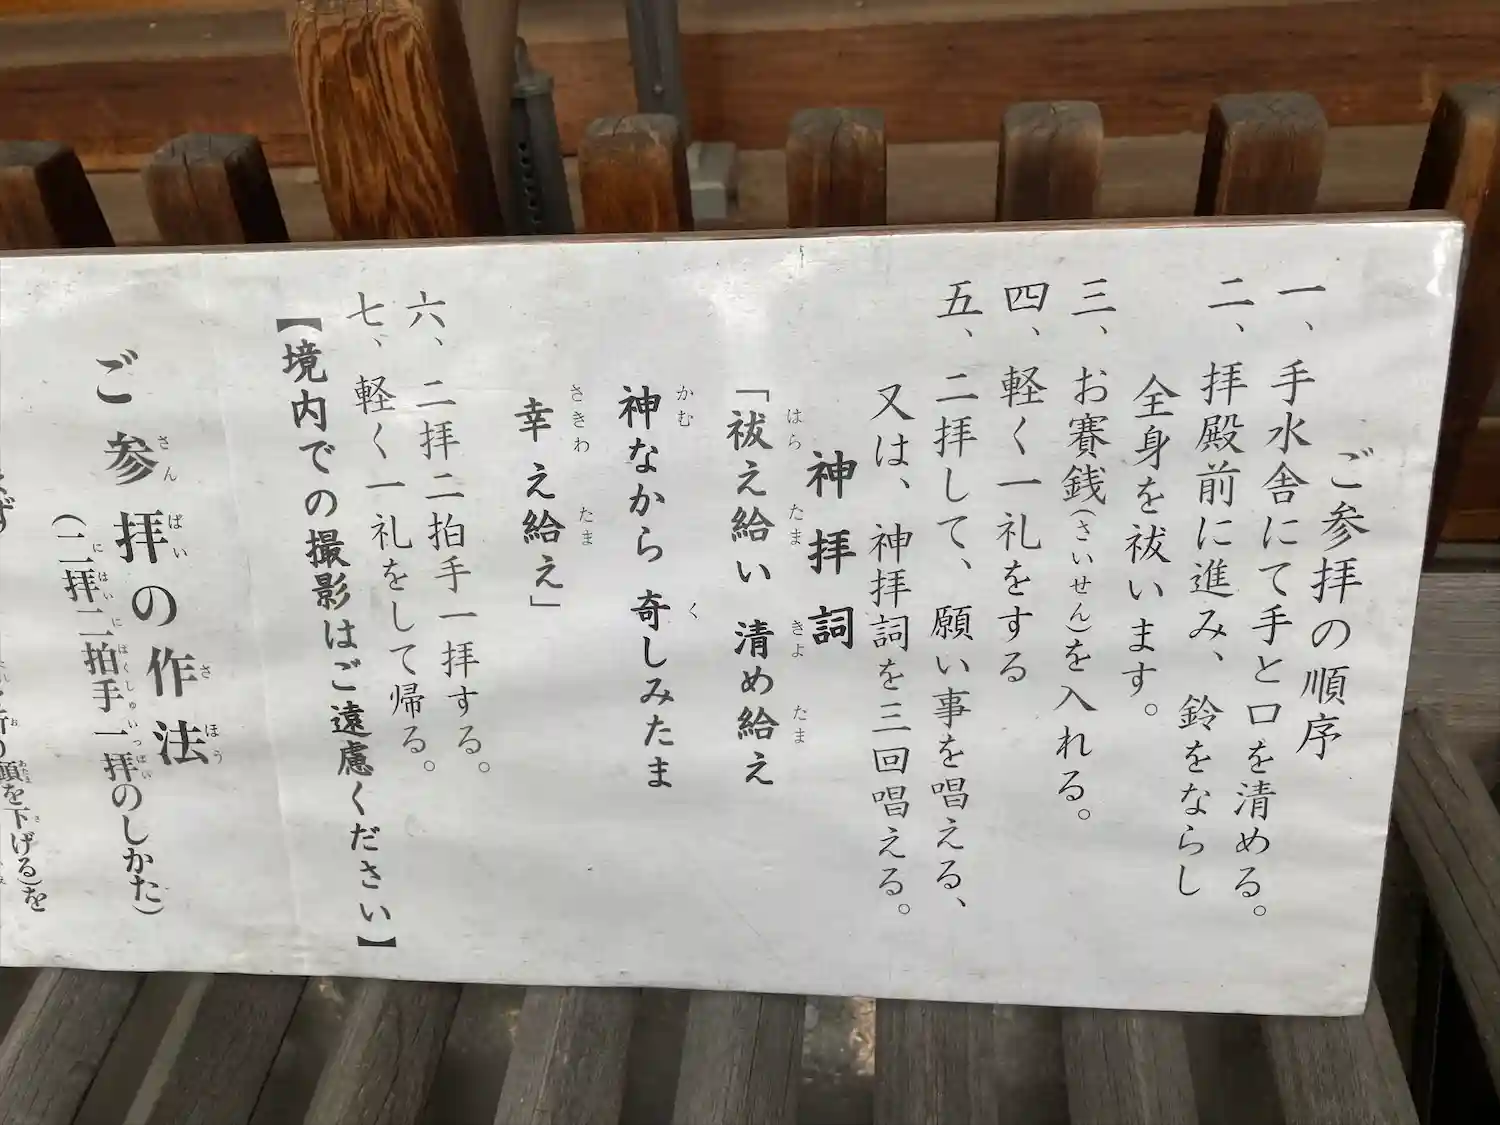 ご参拝の順序
一、手水舎にて手と口を清める。
二、拝殿前に進み、鈴をならし
全身を祓います。
三、お賽銭(さいせん)を入れる。
四、軽く一礼をする
五、二拝して、願い事を唱える、
又は、神拝詞を三回唱える。
神拝詞
「祓え給い 清め給え
はら たま きよ たま
神なから 奇しみたま
かむ く
幸え給え」
さきわ たま
六、二拝二拍手一拝する。
七、軽く一礼をして帰る。
【境内での撮影はご遠慮ください】
ご参拝の作法
さん ぱい さ ほう
(二拝二拍手一拝のしかた)
に はい に はくしゅ いっぱい
頭を下げる)を